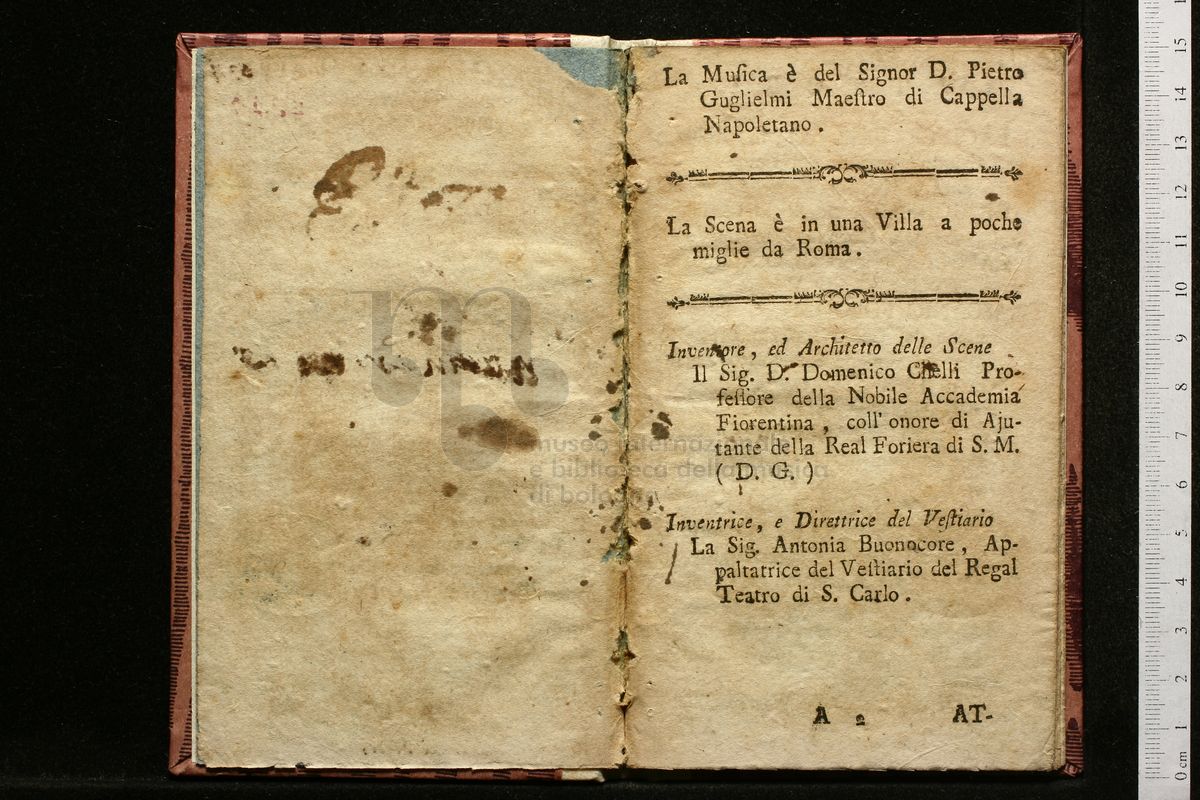 La Muſica è del Signor D. Pietro
Guglielmi Maeſtro di Cappella
Napoletano .
La Scena è in una Villa a poche
miglie da Roma .
Inventore , ed Architetto delle Scene
Il Sig. D. Domenico Chelli Pro-
feſſore della Nobile Accademia
Fiorentina , coll' onore di Aju-
tante della Real Foriera di S. M.
( D. G. )
Inventrice , e Direttrice del Veſtiario
La Sig. Antonia Buonocore , Ap-
paltatrice del Veſtiario del Regal
Teatro di S. Carlo .
A 2 AT-
museo internazionale
e biblioteca della musica
di bologna
15
14
13
12
11
10
9
8
7
6
5
4
3
2
1
0 cm